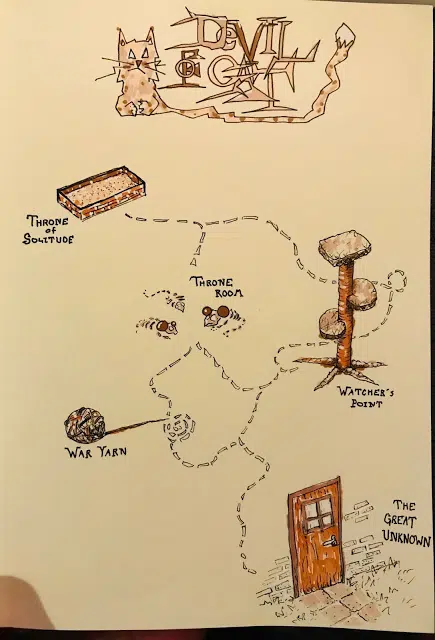 DEVIL
CAT
THRONE
OF
SOLITUDE
THRONE
ROOM
WATCHER'S
POINT
WAR YARN
THE
GREAT
UNKNOWN